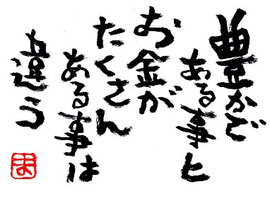 豊かで
ある事と
お金が
たくさん
ある事は
違う
ま